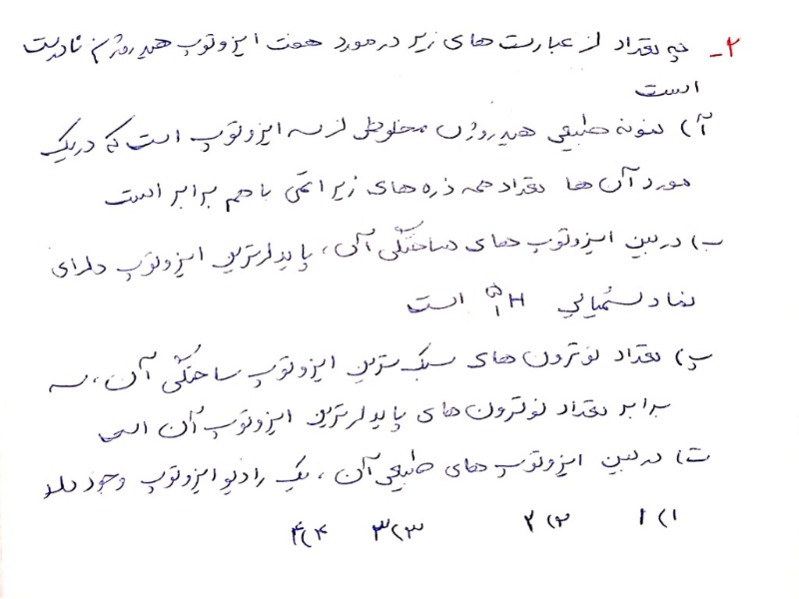 ۲- چه تعداد از عبارت های زیر در مورد هفت ایزوتوپ هیدروژن نادرست
است
آ) نمونه طبیعی هیدروژن مخلوطی از سه ایزوتوپ است که در یک
مورد آن ها تعداد همه ذره های زیر اتمی با هم برابر است
ب) در بین ایزوتوپ های ساختگی آن، پایدارترین ایزوتوپ دارای
نماد شیمیایی ⁵₁H است
پ) تعداد نوترون های سبک ترین ایزوتوپ ساختگی آن، سه
برابر تعداد نوترون های پایدارترین ایزوتوپ آن است
ت) در بین ایزوتوپ های طبیعی آن، یک رادیو ایزوتوپ وجود دارد
۱) ۱ ۲) ۲ ۳) ۳ ۴) ۴